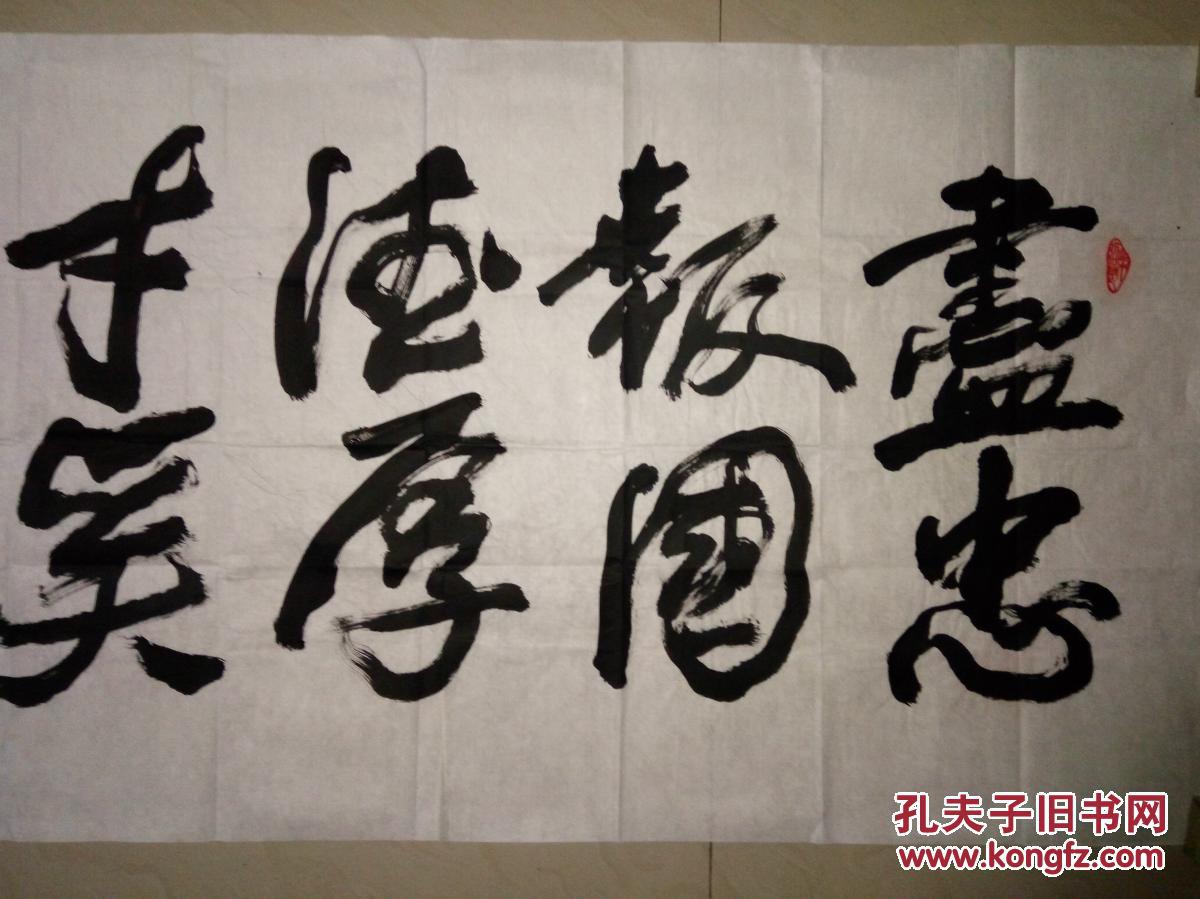 盡忠
報國
德厚
才美
孔夫子旧书网
www.kongfz.com